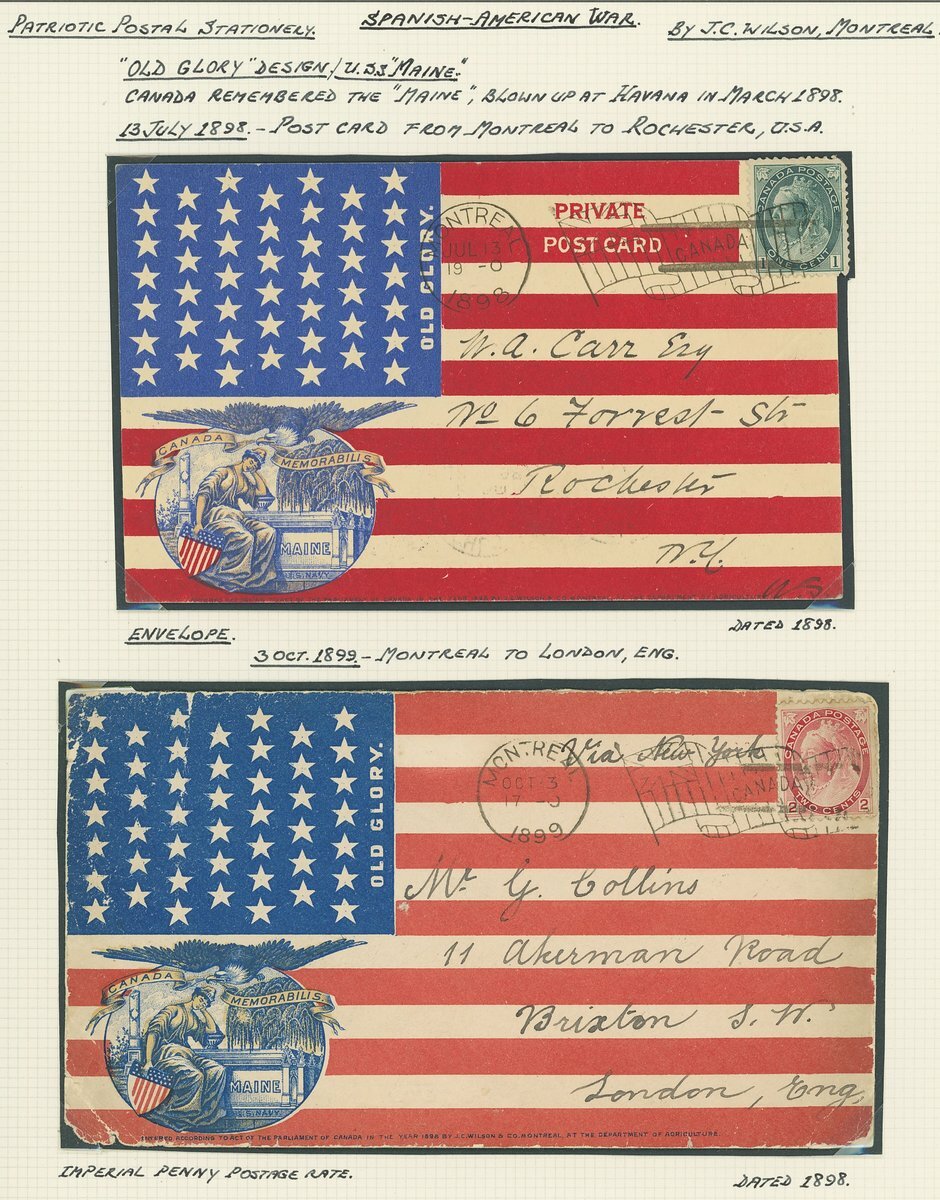 SPANISH-AMERICAN WAR.
PATRIOTIC POSTAL STATIONERY.
BY J.C. WILSON, MONTREAL.
"OLD GLORY" DESIGN / U.S.S "MAINE."
CANADA REMEMBERED THE "MAINE", BLOWN UP AT HAVANA IN MARCH 1898.
13 JULY 1898. - POST CARD FROM MONTREAL TO ROCHESTER, U.S.A.
OLD GLORY.
PRIVATE
POST CARD
MONTREAL
JUL 13
19 - 0
1898
CANADA
CANADA POSTAGE
1 ONE CENT 1
W. A. Carr Esq
No 6 Forrest Str
Rochester
N.Y.
CANADA MEMORABILIS
MAINE
U.S. NAVY
DATED 1898.
ENVELOPE.
3 OCT. 1899. - MONTREAL TO LONDON, ENG.
OLD GLORY.
Via New York
MONTREAL
OCT 3
1899
CANADA
CANADA POSTAGE
2 TWO CENTS 2
Mr. G. Collins
11 Akerman Road
Brixton S. W.
London, Eng.
CANADA MEMORABILIS
MAINE
U.S. NAVY
ENTERED ACCORDING TO ACT OF THE PARLIAMENT OF CANADA IN THE YEAR 1898 BY J.C. WILSON & CO. MONTREAL, AT THE DEPARTMENT OF AGRICULTURE.
IMPERIAL PENNY POSTAGE RATE.
DATED 1898.